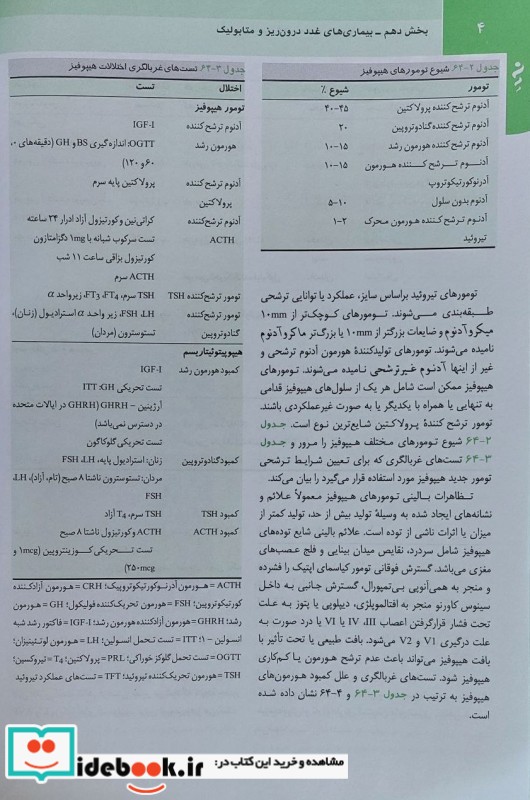 ۴
بخش دهم ــ بیماری‌های غدد درون‌ریز و متابولیک
جدول ۲-۶۴ شیوع تومورهای هیپوفیز
تومور شیوع %
آدنوم ترشح‌کننده پرولاکتین ۴۰-۴۵
آدنوم ترشح‌کننده گنادوتروپین ۲۰
آدنوم ترشح‌کننده هورمون رشد ۱۰-۱۵
آدنوم ترشح کننده هورمون ۱۰-۱۵
آدرنوکورتیکوتروپ
آدنوم بدون سلول ۵-۱۰
آدنوم ترشح کننده هورمون محرک ۱-۲
تیروئید
تومورهای تیروئید براساس سایز، عملکرد یا توانایی ترشحی
طبقه‌بندی می‌شوند. تومورهای کوچک‌تر از ۱۰mm
میکروآدنوم و ضایعات بزرگتر از ۱۰mm یا بزرگ‌تر ماکروآدنوم
نامیده می‌شوند. تومورهای تولیدکنندهٔ هورمون آدنوم ترشحی و
غیر از اینها آدنوم غیرترشحی نامیده می‌شوند. تومورهای
هیپوفیز ممکن است شامل هر یک از سلول‌های هیپوفیز قدامی
به تنهایی یا همراه با یکدیگر یا به صورت غیرعملکردی باشند.
تومور ترشح کنندهٔ پرولاکتین شایع‌ترین نوع است. جدول
۲-۶۴ شیوع تومورهای مختلف هیپوفیز را مرور و جدول
۳-۶۴ تست‌های غربالگری که برای تعیین شرایط ترشحی
تومور جدید هیپوفیز مورد استفاده قرار می‌گیرد را بیان می‌کند.
تظاهرات بالینی تومورهای هیپوفیز معمولاً علائم و
نشانه‌های ایجاد شده به وسیلهٔ تولید بیش از حد، تولید کمتر از
میزان یا اثرات ناشی از توده است. علائم بالینی شایع توده‌های
هیپوفیز شامل سردرد، نقایص میدان بینایی و فلج عصب‌های
مغزی می‌باشد. گسترش فوقانی تومور کیاسمای اپتیک را فشرده
و منجر به همی‌آنوپی بی‌تمپورال، گسترش جانبی به داخل
سینوس کاورنو منجر به افتالموپلژی، دیپلوپی یا پتوز به علت
تحت فشار قرارگرفتن اعصاب III، IV یا VI یا درد صورت به
علت درگیری V1 و V2 می‌شود. بافت طبیعی یا تحت تأثیر با
بافت هیپوفیز می‌تواند باعث عدم ترشح هورمون یا کم‌کاری
هیپوفیز شود. تست‌های غربالگری و علل کمبود هورمون‌های
هیپوفیز به ترتیب در جدول ۳-۶۴ و ۴-۶۴ نشان داده شده
است.
جدول ۳-۶۴ تست‌های غربالگری اختلالات هیپوفیز
اختلال تست
تومور هیپوفیز
آدنوم ترشح‌کننده IGF-I
هورمون رشد OGTT: اندازه‌گیری BS و GH (دقیقه‌های ۰،
۶۰ و ۱۲۰)
آدنوم ترشح‌کننده پرولاکتین پایه سرم
پرولاکتین
آدنوم ترشح‌کننده کراتی‌نین و کورتیزول آزاد ادرار ۲۴ ساعته
ACTH تست سرکوب شبانه با ۱mg دگزامتازون
کورتیزول بزاقی ساعت ۱۱ شب
ACTH سرم
تومور ترشح‌کننده TSH TSH سرم، FT4، FT3، زیرواحد α
تومور ترشح‌کننده FSH، LH، زیر واحد α استرادیول (زنان)،
گنادوتروپین تستوسترون (مردان)
هیپوپیتوئیتاریسم
کمبود هورمون رشد IGF-I
تست تحریکی GH: ITT
آرژینین - GHRH (GHRH در ایالات متحده
در دسترس نمی‌باشد)
تست تحریکی گلوکاگون
کمبود گنادوتروپین زنان: استرادیول پایه، FSH، LH
مردان: تستوسترون ناشتا ۸ صبح (تام، آزاد)، LH،
FSH
کمبود TSH TSH سرم، T4 آزاد
کمبود ACTH ACTH و کورتیزول ناشتا ۸ صبح
تست تحریکی کوزینتروپین (۱mcg و
۲۵۰mcg)
ACTH = هورمون آدرنوکورتیکوتروپیک؛ CRH = هورمون آزادکننده
کورتیکوتروپین؛ FSH = هورمون تحریک‌کننده فولیکول؛ GH = هورمون
رشد؛ GHRH = هورمون آزادکننده هورمون رشد؛ IGF-I = فاکتور رشد شبه
انسولین - ۱؛ ITT = تست تحمل انسولین؛ LH = هورمون لوتئینیزان؛
OGTT = تست تحمل گلوکز خوراکی؛ PRL = پرولاکتین؛ T4 = تیروکسین؛
TSH = هورمون تحریک‌کننده تیروئید؛ TFT = تست‌های عملکرد تیروئید
iidebook.ir
مشاهده و خرید این کتاب در: